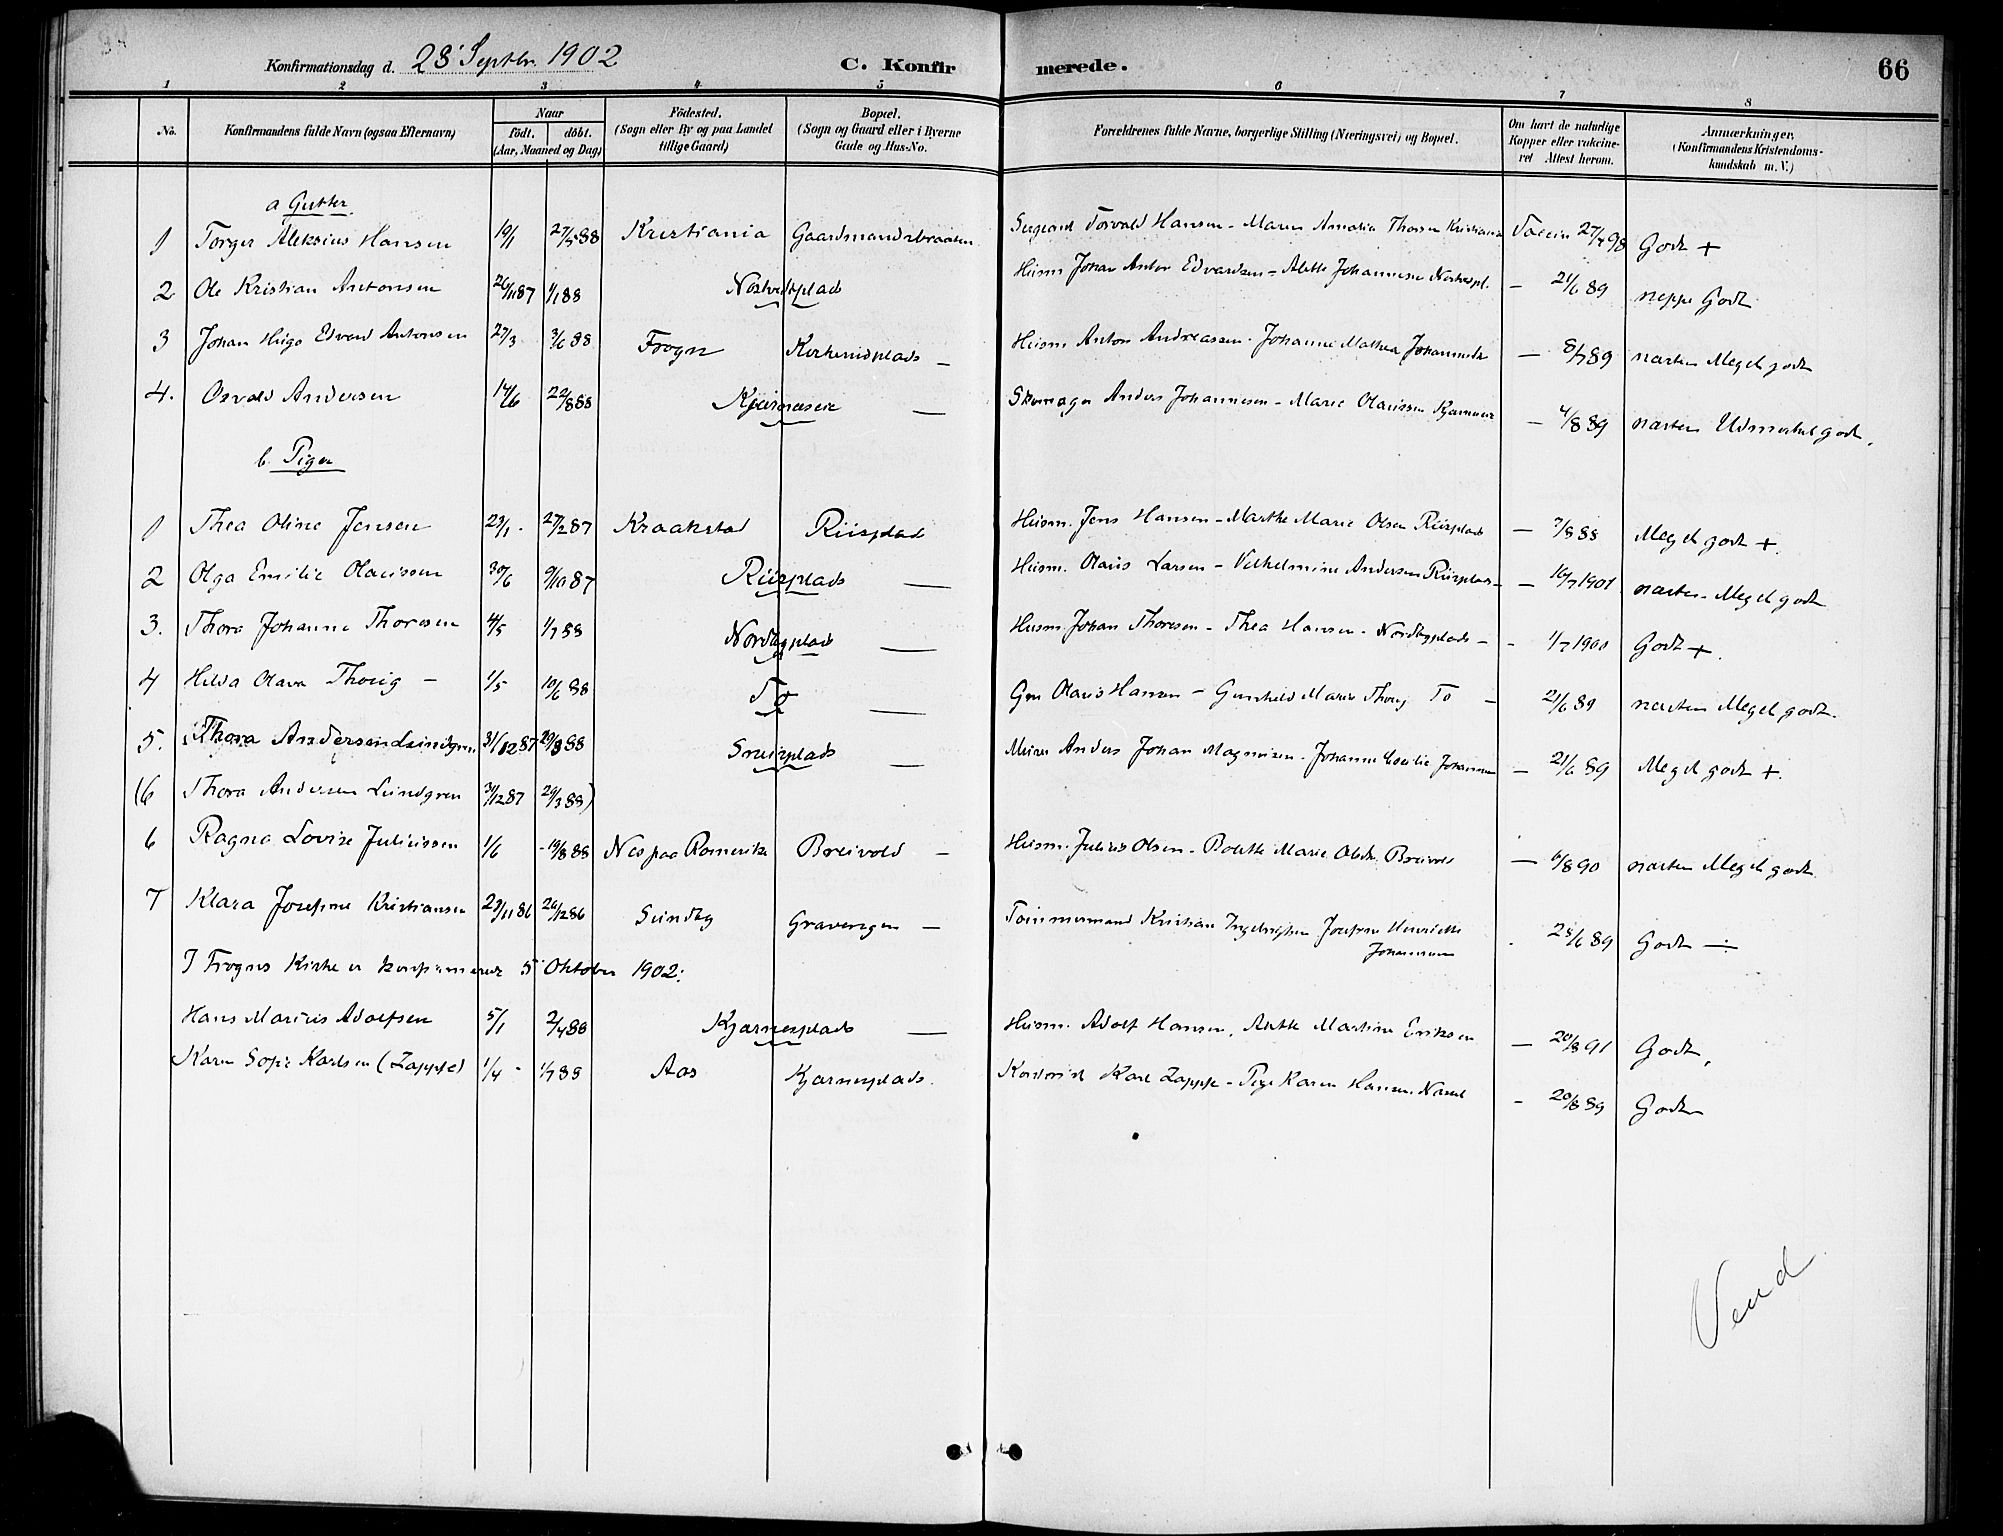 Konfirmationsdag d. 28' Septbr. 1902
C. Konfirmerede.
66
1 2 3 4 5 6 7 8
No.
Konfirmandens fulde Navn (ogsaa Efternavn)
Naar
födt. döbt.
(Aar, Maaned og Dag)
Födested.
(Sogn eller By og paa Landet
tillige Gaard)
Bopæl.
(Sogn og Gaard eller i Byerne
Gade og Hus-No.
Forældrenes fulde Navne, borgerlige Stilling (Næringsvei) og Bopæl.
Om havt de naturlige
Kopper eller vakcine-
ret Attest herom.
Anmærkninger,
(Konfirmandens Kristendoms-
kundskab m. V.)
a Gutter
1 Torger Aleksius Hansen 19/1 27/5 88 Kristiania Gaardmandsbraaten Sergeant Torvald Hansen - Maren Amalia Thorsen Kristiania Vaccin 27/7 98 Godt +
2 Ole Kristian Antonsen 26/11 87 1/1 88 Nostvedtplads Husm Johan Anton Edvardsen - Alette Johannesen Nostvedtpl. - 21/6 89 neppe Godt
3 Johan Hugo Edvard Antonsen 27/3 3/6 88 Frogn Kirkerudplads - Husm Anton Andreassen - Johanne Mathea Johannesdr - 8/7 89 næsten Meget godt
4. Osvald Andersen 14/6 22/8 88 Kjærnæseie - Skomager Anders Johannesen - Marie Olaussen Kjærnæseie - 4/8 89 næsten Udmerket godt.
b. Piger
1 Thea Oline Jensen 23/1 - 27/2 87 Kraakstad Riisplads Husm. Jens Hansen - Marthe Marie Olsen Riisplads - 7/8 88 Meget godt +.
2 Olga Emilie Olaussen 30/6 9/10 87 Riisplads - Husm. Olaus Larsen - Vilhelmine Andersen Riisplads - - 16/7 1901 næsten Meget godt
3. Thora Johanne Thoresen 4/5 1/7 88 Nordbyplads - Husm. Johan Thoresen - Thea Hansen - Nordbyplads - - 1/7 1900 Godt +.
4 Hilda Olava Thorig - 1/5 10/6 88 To - Gm Olaus Hansen - Gunhild Marie Thorig To - 21/6 89 næsten Meget godt.
5. Thora Andersen Lindgren 31/12 87 29/3 88 Sneisplads - Murer Anders Johan Magnusen - Johanne Cecilie Johannsen - 21/6 89 Meget godt +.
(6 Thora Andersen Lundgren 31/12 87 29/3 88)
6 Ragna Lovise Juliussen 1/6 - 19/8 88 Nes paa Romerike Breivold - Husm. Julius Olsen - Bolette Marie Olsdr. Breivold - 6/8 90 næsten Meget godt
7 Klara Josefine Kristiansen 23/11 86 26/12 86 Sundby Gravengen - Tømmermand Kristian Ingebrigtsen Josefine Henriette
Johannesen . 28/6 89 Godt ÷
I Frogns Kirke er konfirmeret 5' Oktober 1902:
Hans Marius Adolfsen 5/1 2/4 88 Kjærnesplads - Husm. Adolf Hansen, Alette Martine Eriksen - 20/8 91 Godt,
Karen Sofie Karlsen (Zappfe) 1/4 - 1/7 88 Aas Kjærnesplads. Kontorist Karl Zappfe - Pige Karen Hansen. - 20/8 89 Godt
Vend